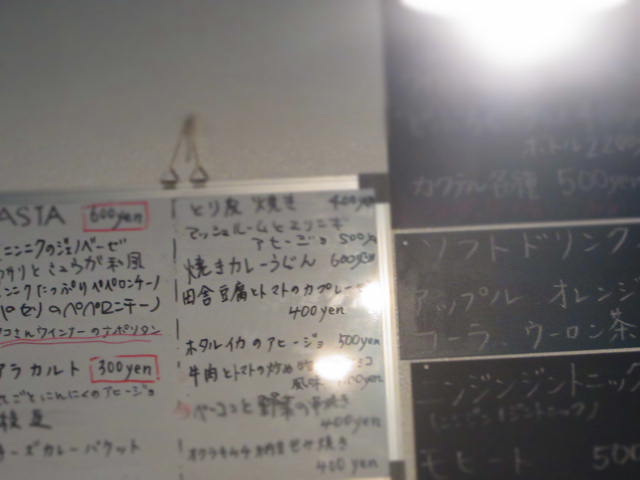 ASTA 600yen
ニンニクの
和風
ニンニクたっぷりペペロンチーノ
のペペロンチーノ
タコさんウインナーのナポリタン
アラカルト 300yen
にんにくのアヒージョ
チーズカレーバケット
とり皮 焼き 400yen
マッシュルームと
アヒージョ 500y
焼きカレーうどん 600yen
田舎豆腐とトマトのカプレーゼ
400yen
ホタルイカのアヒージョ 500yen
牛肉とトマトの炒め
風味
ベーコンと野菜の串焼き
400yen
オクラキムチ納豆
400yen
ボトル 2200
カクテル各種 500yen
ソフトドリンク
アップル オレンジ
コーラ ウーロン茶
ニンジンジントニック
モヒート 500